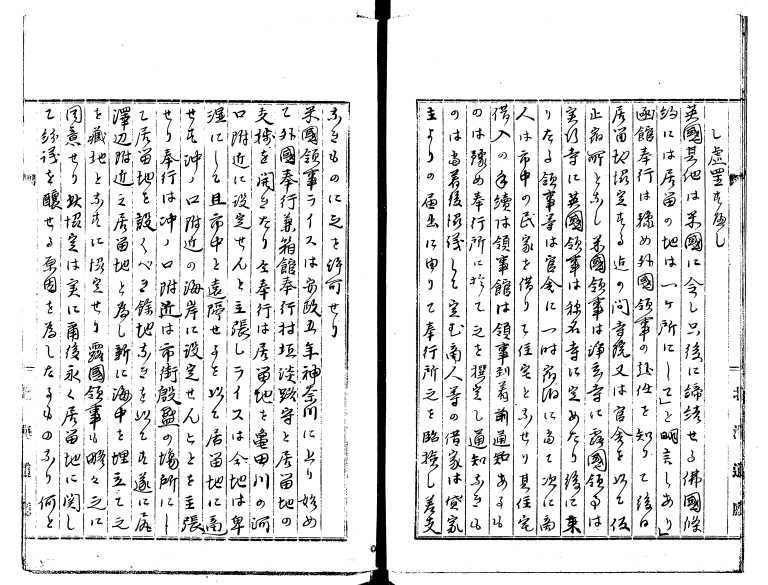 し虚置するべし
英國其他は米國に全し只後に諦結せる佛國條
約には居留の地は一ケ所にして」と明言しあり」
函館奉行は豫め外國領事の赴任を知りて後日
居留地協定する迄の間寺院又は官舎を以て仮
止宿所となし米國領事は浄玄寺に露國領事は
実行寺に英國領事は称名寺に定めたり後に来
りたる領事等は官舎に一時宿泊に当て次に商
人は市中の民家を借りて住宅となせり其住宅
借入の手續は領事館は領事到着前通知あるも
のは豫め奉行所に於て之を撰定し通知なきも
のは当着後協議して定む商人等の借家は貸家
主よりの届出に由りて奉行所之を臨検し差支
なきものに之を許可せり
米國領事ライスは安政五年神奈川に上り始め
て外國奉行兼箱館奉行村垣淡路守と居留地の
支擾を開きたり全奉行は居留地を亀田川の河
口附近に設定せんと主張しライスは全地は卑
湿にして且市中と遠隔せるを以て居留地に適
せず沖ノ口附近の海岸に設定せんことを主張
せり奉行は沖ノ口附近は市街殷盛の場所にし
て居留地を設くべき餘地なきを以てす遂に唐
澤辺附近を居留地と為し新に海中を埋立て之
を蔵地となすに協定せり露國領事も略々之に
同意せり此協定は実に爾後永く居留地に関し
て紛議を釀せる原因を為したるものなり何と
北海道廳